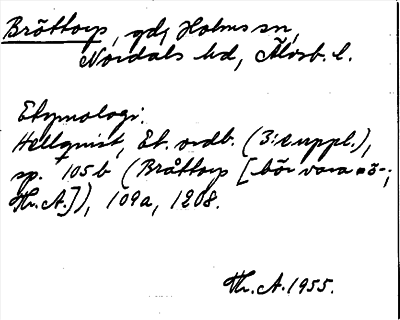 Bröttorp, gd, Holms sn,
Nordals hd, Älvsb. l.
Etymologi:
Hellquist, Et. ordb. (3:e uppl.),
sp. 105 b (Bråttorp [bör vara -ö-;
Hr. A.]), 109a, 1208.
Hr. A. 1955.